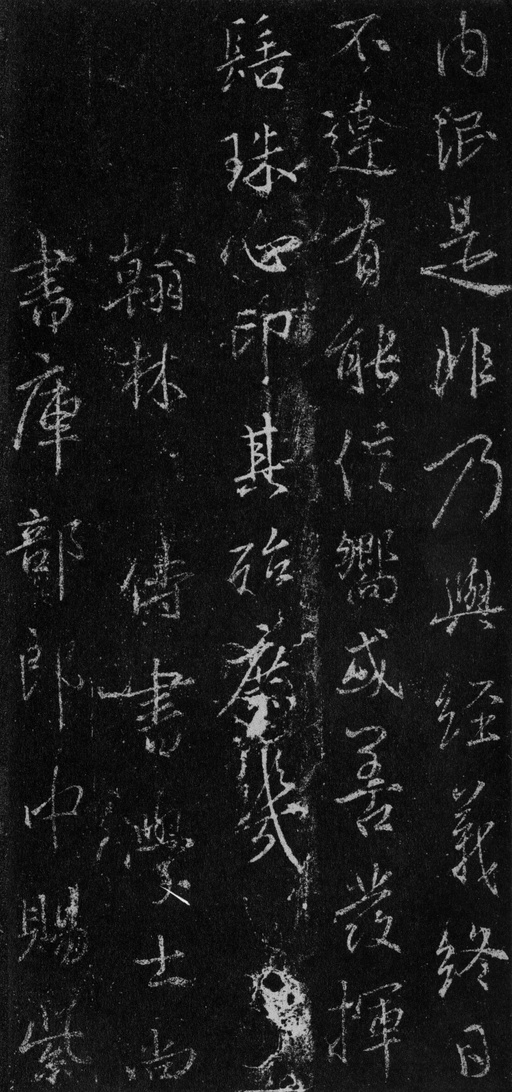 内泯是非乃與經義終日
不違有能信嚮或善發揮
髻珠心印其殆庶幾
翰林侍書學士尚
書庫部郎中賜紫